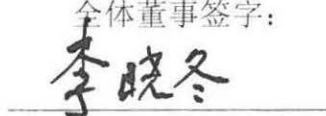 全体董事签字：
李晓冬